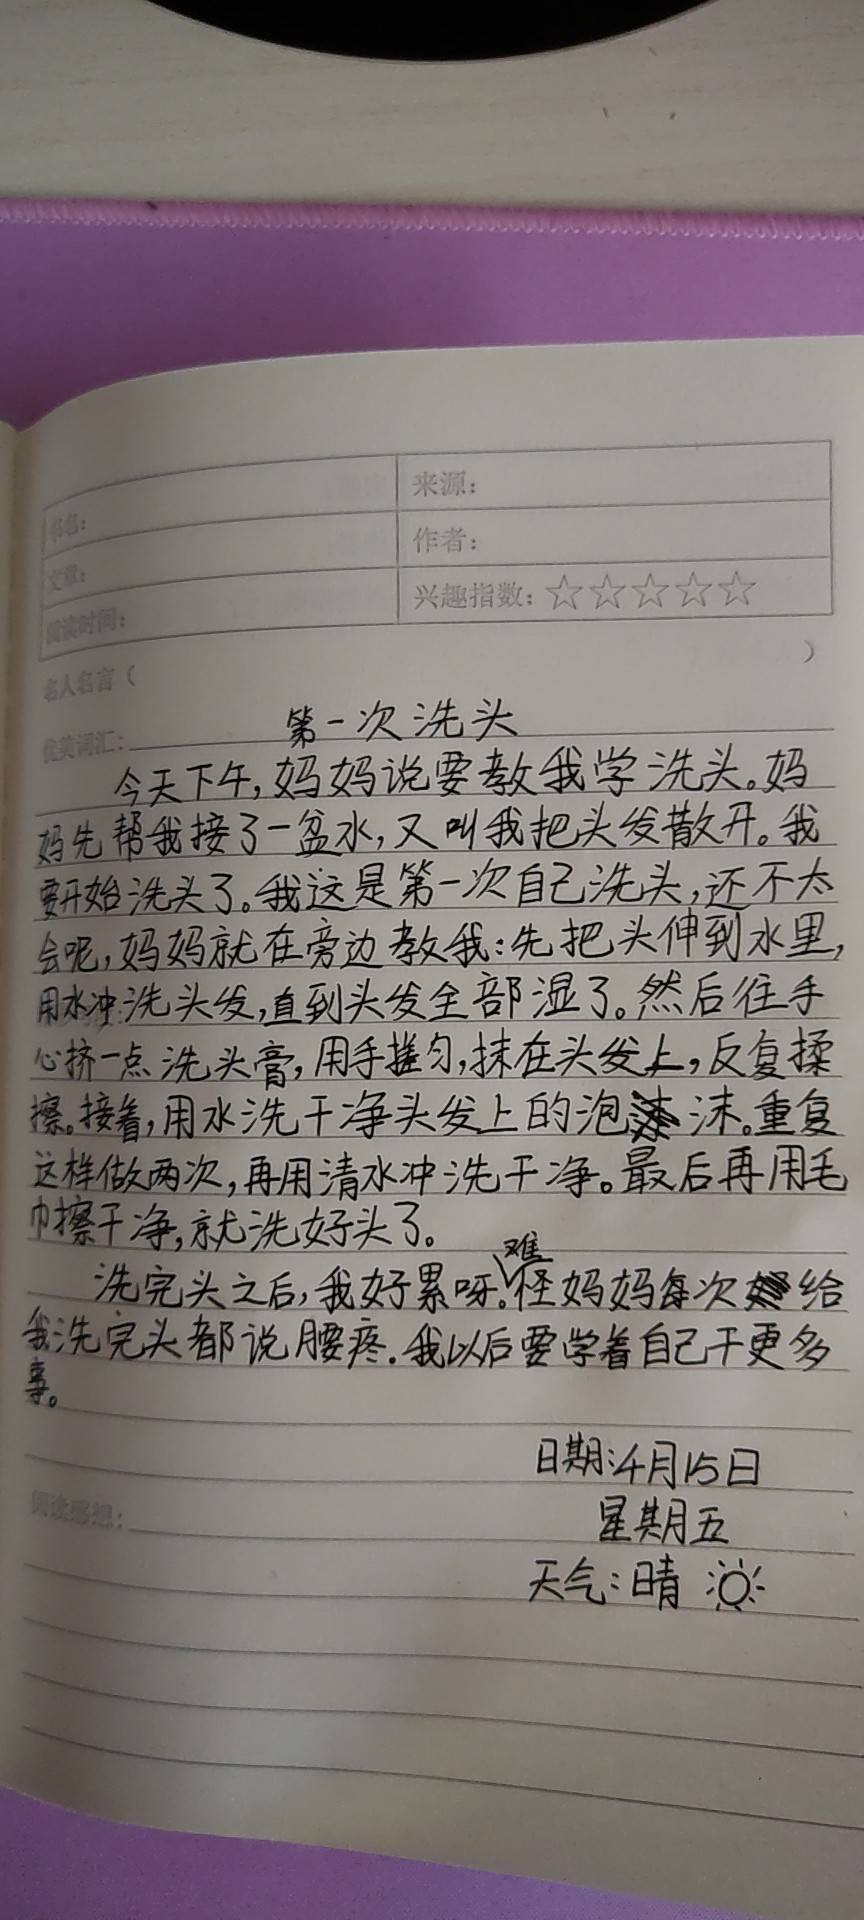 书名：
来源：
文章：
作者：
阅读时间：
兴趣指数：☆☆☆☆☆
名人名言（ ）
优美词汇：
第一次洗头
今天下午，妈妈说要教我学洗头。妈
妈先帮我接了一盆水，又叫我把头发散开。我
要开始洗头了。我这是第一次自己洗头，还不太
会呢，妈妈就在旁边教我：先把头伸到水里，
用水冲洗头发，直到头发全部湿了。然后往手
心挤一点洗头膏，用手搓匀，抹在头发上，反复揉
擦。接着，用水洗干净头发上的泡沫。重复
这样做两次，再用清水冲洗干净。最后再用毛
巾擦干净，就洗好头了。
洗完头之后，我好累呀。难怪妈妈每次给
我洗完头都说腰疼。我以后要学着自己干更多
事。
日期：4月15日
星期五
天气：晴
阅读感想：